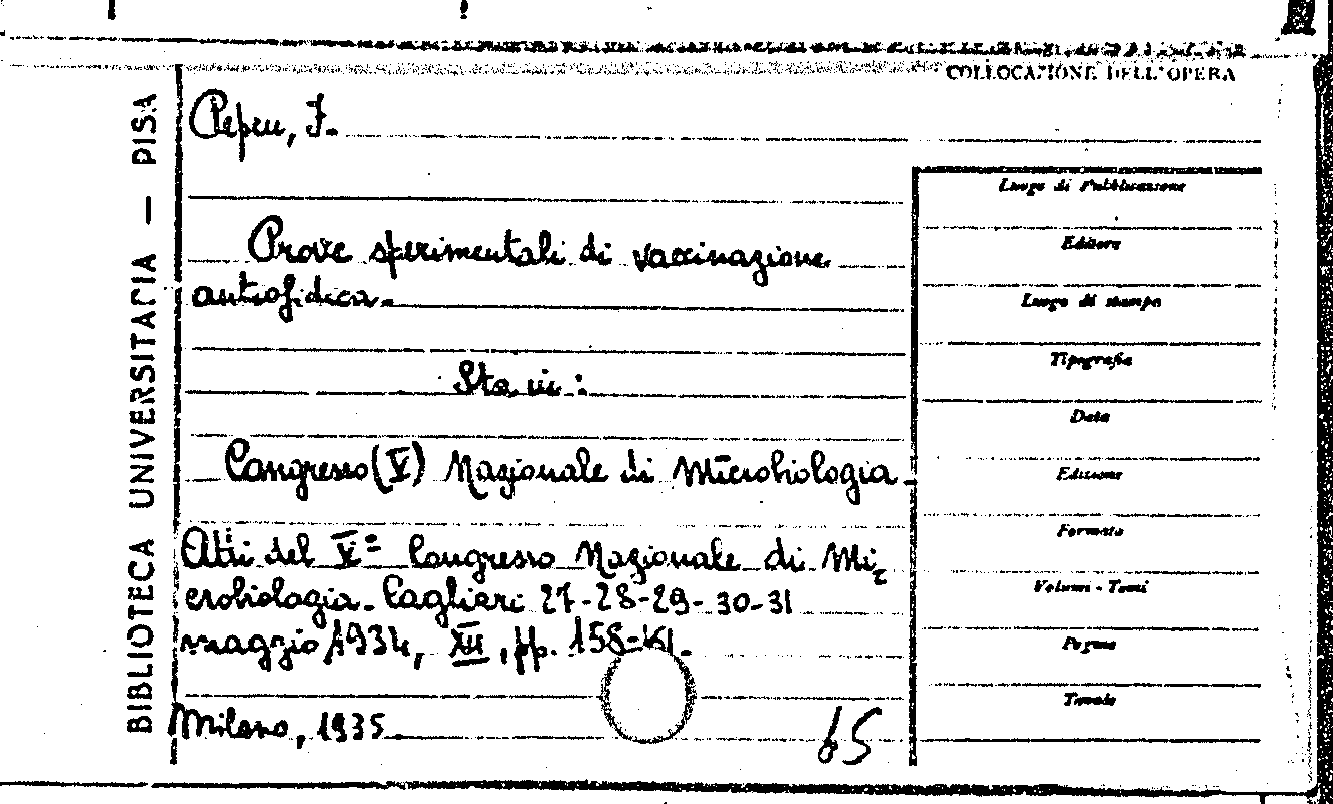 COLLOCAZIONE DELL'OPERA
BIBLIOTECA UNIVERSITARIA — PISA
Pepeu, F.
Prove sperimentali di vaccinazione
antiofidica.
Sta in:
Congresso (V) Nazionale di Microbiologia.
Atti del V.º Congresso Nazionale di Mi-
crobiologia. Cagliari 27-28-29-30-31
maggio 1934, XII, pp. 158-161.
Milano, 1935.
65
Luogo di Pubblicazione
Editore
Luogo di stampa
Tipografia
Data
Edizione
Formato
Volumi - Tomi
Pagine
Tavole